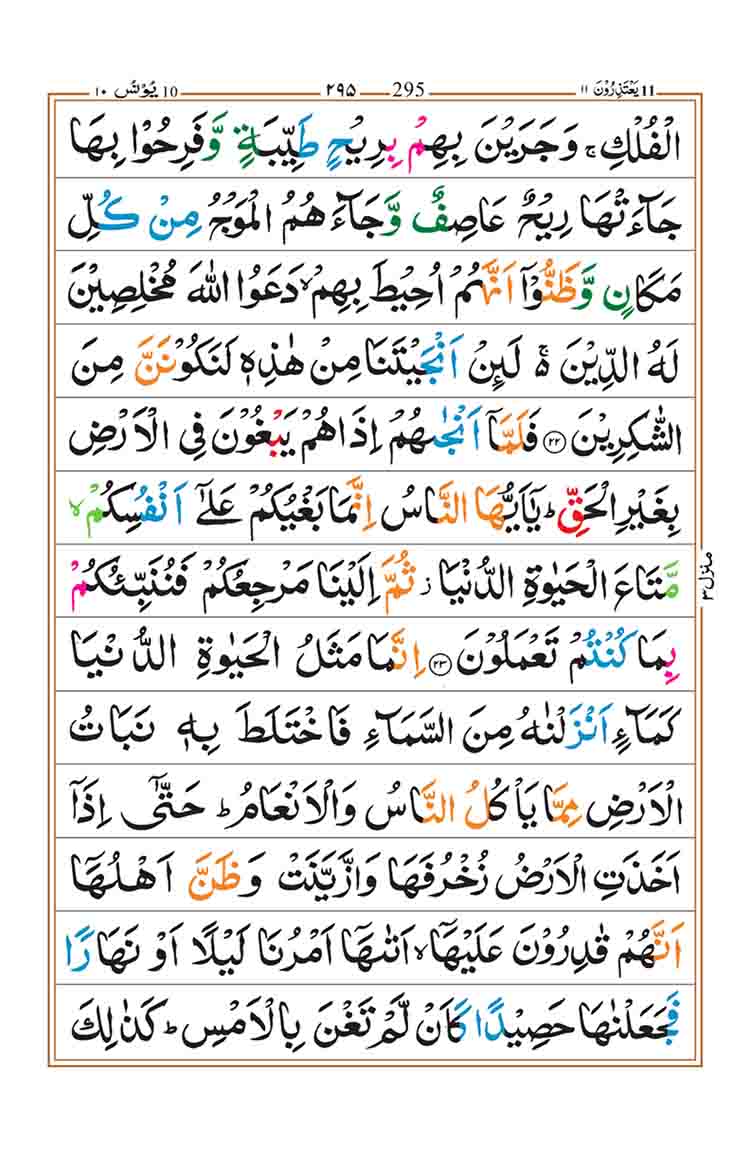 11 يَعْتَذِرُوْنَ ١١ 295 ٢٩٥ 10 يُوْنُس ١٠
الْفُلْكِ ۚ وَجَرَيْنَ بِهِمْ بِرِيْحٍ طَيِّبَةٍ وَّفَرِحُوْا بِهَا
جَآءَتْهَا رِيْحٌ عَاصِفٌ وَّجَآءَهُمُ الْمَوْجُ مِنْ كُلِّ
مَكَانٍ وَّظَنُّوْٓا اَنَّهُمْ اُحِيْطَ بِهِمْ ۙ دَعَوُا اللهَ مُخْلِصِيْنَ
لَهُ الدِّيْنَ ۚ لَئِنْ اَنْجَيْتَنَا مِنْ هٰذِهٖ لَنَكُوْنَنَّ مِنَ
الشّٰكِرِيْنَ ٢٢ فَلَمَّآ اَنْجٰىهُمْ اِذَا هُمْ يَبْغُوْنَ فِى الْاَرْضِ
بِغَيْرِ الْحَقِّ ؕ يٰٓاَيُّهَا النَّاسُ اِنَّمَا بَغْيُكُمْ عَلٰٓى اَنْفُسِكُمْ ۙ
مَّتَاعَ الْحَيٰوةِ الدُّنْيَا ز ثُمَّ اِلَيْنَا مَرْجِعُكُمْ فَنُنَبِّئُكُمْ
بِمَا كُنْتُمْ تَعْمَلُوْنَ ٢٣ اِنَّمَا مَثَلُ الْحَيٰوةِ الدُّنْيَا
كَمَآءٍ اَنْزَلْنٰهُ مِنَ السَّمَآءِ فَاخْتَلَطَ بِهٖ نَبَاتُ
الْاَرْضِ مِمَّا يَاْكُلُ النَّاسُ وَالْاَنْعَامُ ؕ حَتّٰٓى اِذَآ
اَخَذَتِ الْاَرْضُ زُخْرُفَهَا وَازَّيَّنَتْ وَظَنَّ اَهْلُهَآ
اَنَّهُمْ قٰدِرُوْنَ عَلَيْهَآ ۙ اَتٰىهَآ اَمْرُنَا لَيْلًا اَوْ نَهَارًا
فَجَعَلْنٰهَا حَصِيْدًا كَاَنْ لَّمْ تَغْنَ بِالْاَمْسِ ؕ كَذٰلِكَ
منزل ٣